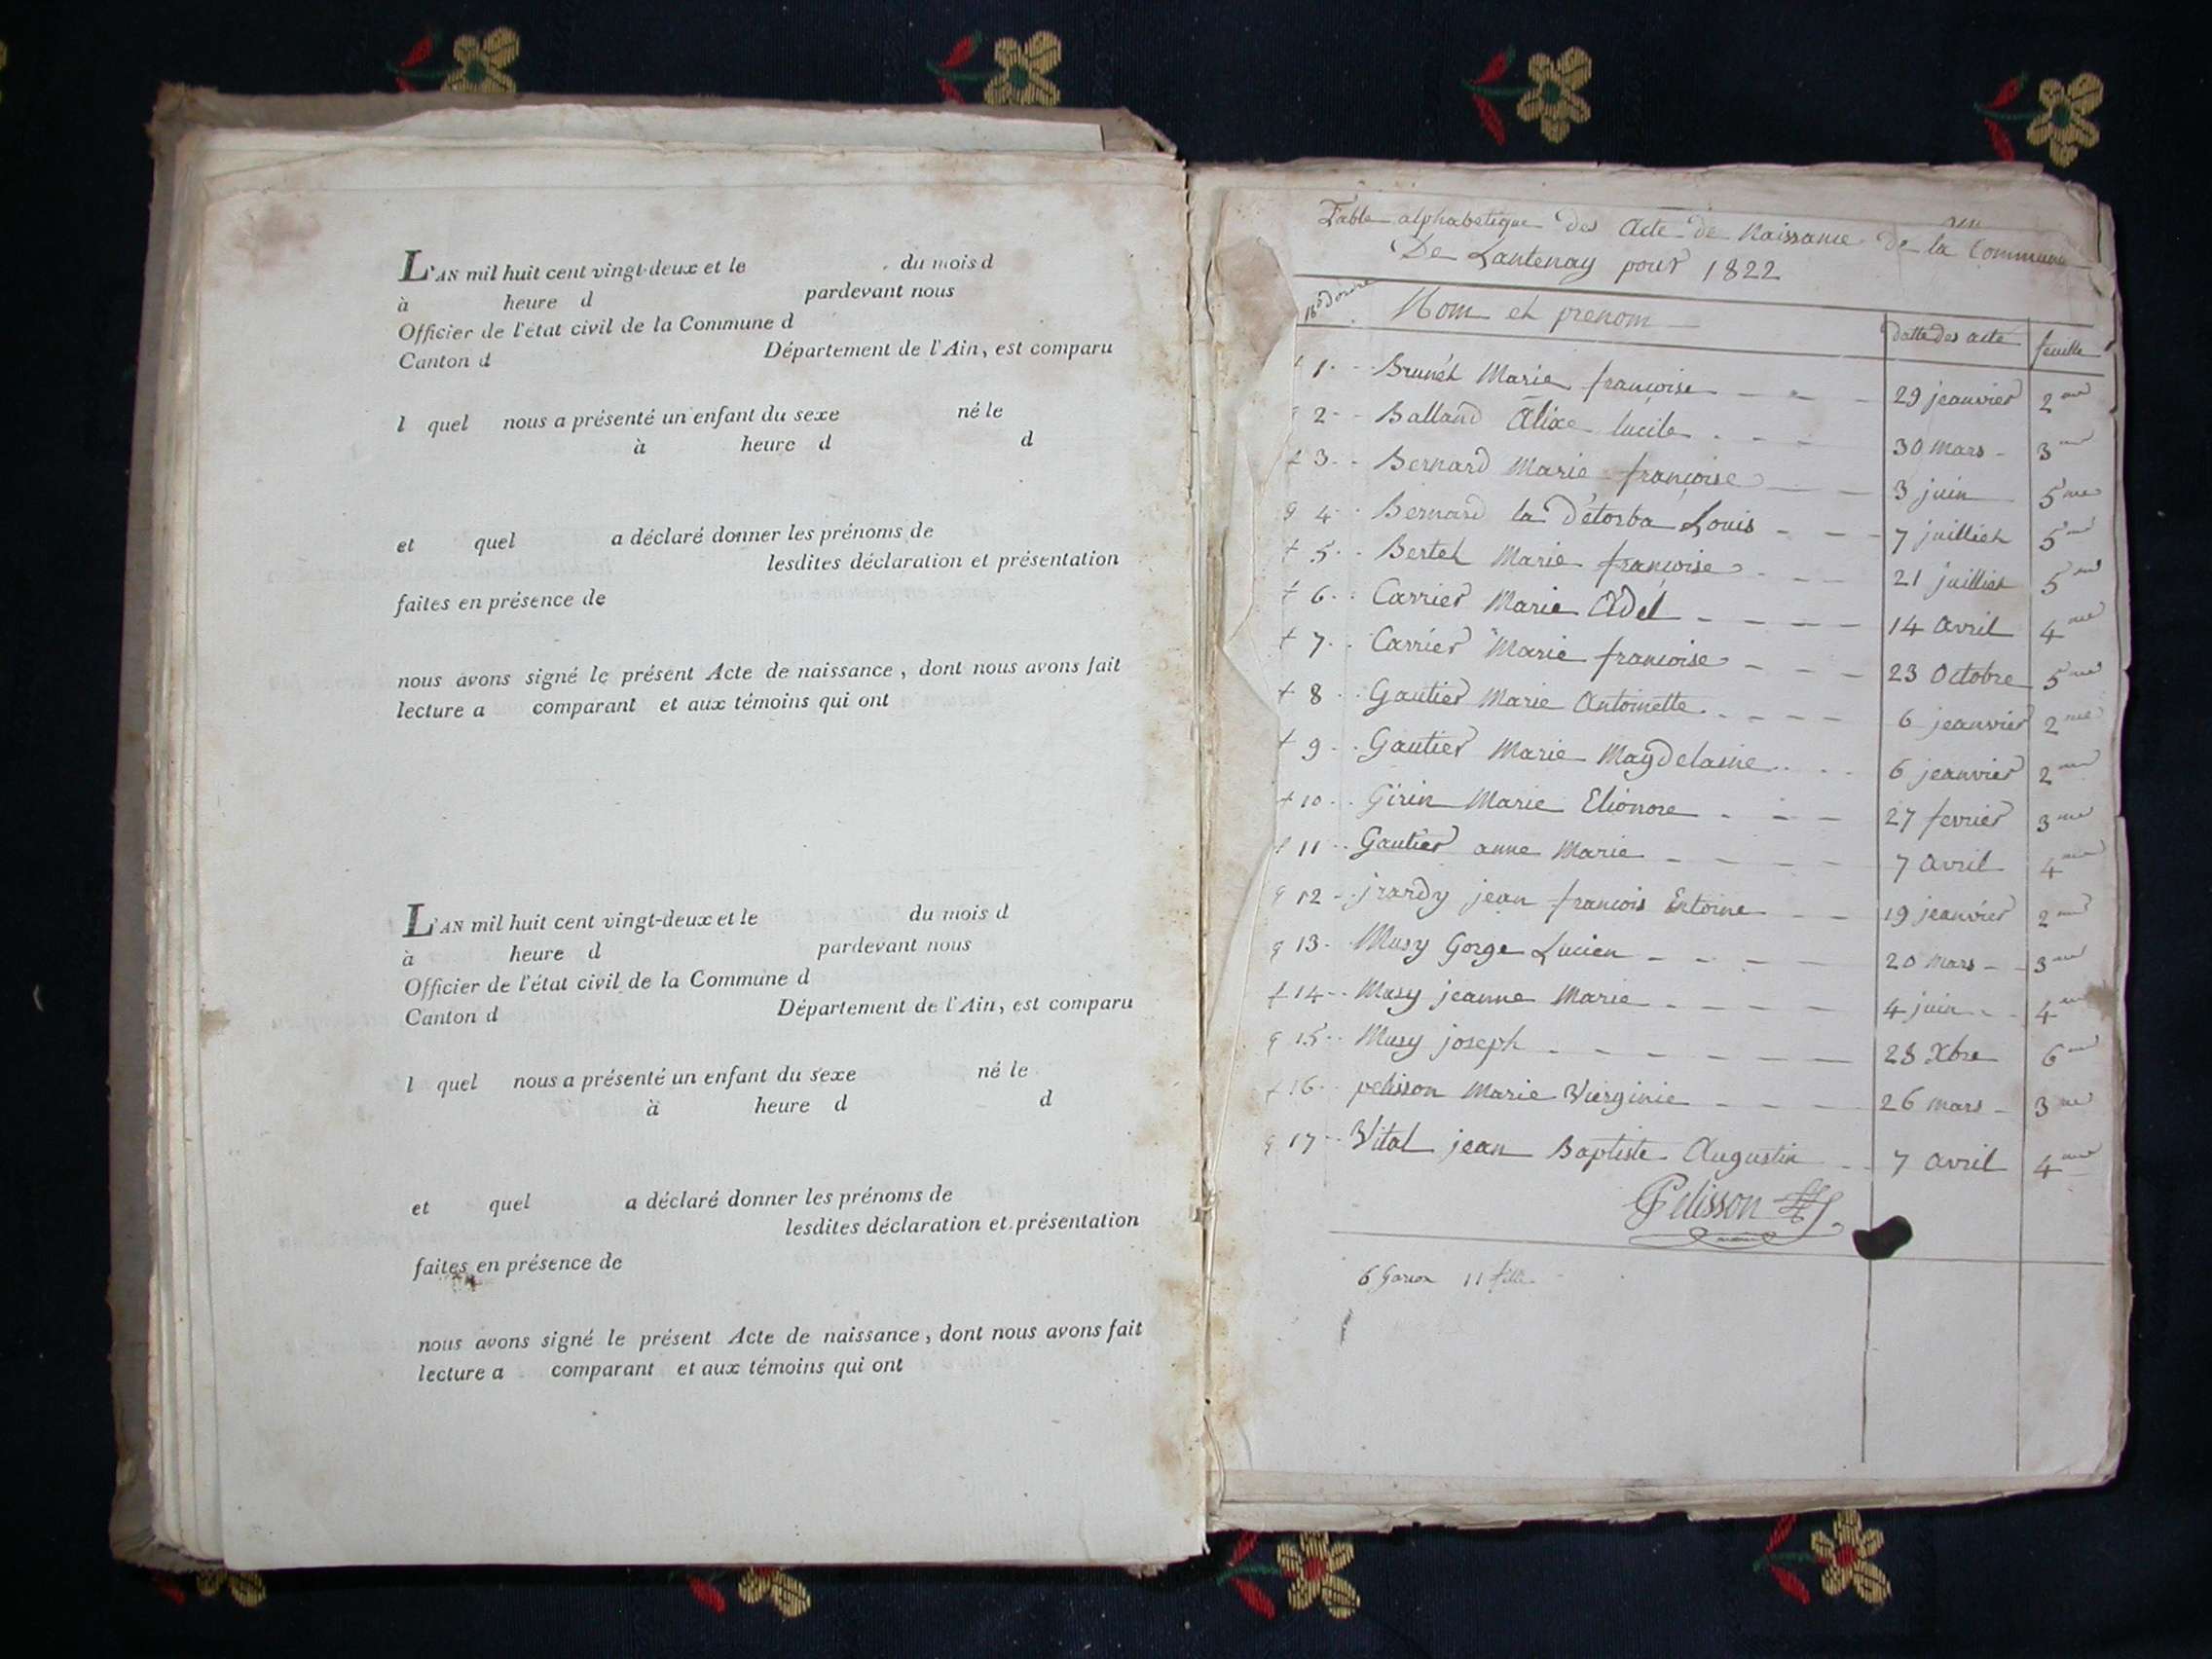 L'AN mil huit cent vingt-deux et le du mois d
à heure d pardevant nous
Officier de l'état civil de la Commune d
Canton d Département de l'Ain, est comparu
l quel nous a présenté un enfant du sexe né le
à heure d d
et quel a déclaré donner les prénoms de
lesdites déclaration et présentation
faites en présence de
nous avons signé le présent Acte de naissance, dont nous avons fait
lecture a comparant et aux témoins qui ont
L'AN mil huit cent vingt-deux et le du mois d
à heure d pardevant nous
Officier de l'état civil de la Commune d
Canton d Département de l'Ain, est comparu
l quel nous a présenté un enfant du sexe né le
à heure d d
et quel a déclaré donner les prénoms de
lesdites déclaration et présentation
faites en présence de
nous avons signé le présent Acte de naissance, dont nous avons fait
lecture a comparant et aux témoins qui ont
Table alphabetique des Acte de Naissance de la Commune
De Lantenay pour 1822
Nom et prenom datte des acte feuille
f 1 Brunet Marie françoise 29 jeanvier 2me
g 2 Balland Alixe lucile 30 mars 3me
f 3 Bernard Marie françoise 3 juin 5me
g 4 Bernard la Détorba Louis 7 juilliet 5me
f 5 Bertet Marie françoise 21 juilliet 5me
f 6 Carrier Marie Adel 14 avril 4me
f 7 Carrier Marie françoise 23 Octobre 5me
f 8 Gautier Marie Antoinette 6 jeanvier 2me
f 9 Gautier Marie Magdelaine 6 jeanvier 2me
f 10 Girin Marie Elionore 27 fevrier 3me
f 11 Gautier anne Marie 7 avril 4me
g 12 jrardy jean francois Entoine 19 jeanvier 2me
g 13 Musy Gorge Lucien 20 mars 3me
f 14 Musy jeanne Marie 4 juin 4me
g 15 Musy joseph 28 Xbre 6me
f 16 pelisson Marie Vierginie 26 mars 3me
g 17 Vital jean Baptiste Augustin 7 avril 4me
Pelisson
maire
6 Garcon 11 fille